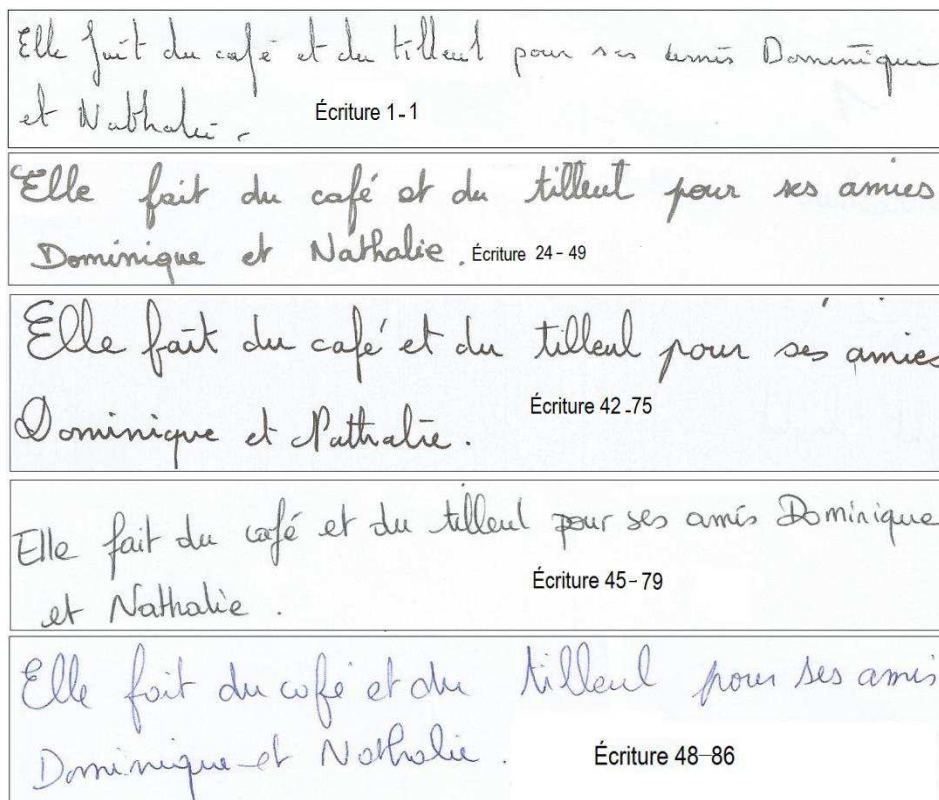 Elle fait du café et du tilleul pour ses amis Dominique
et Nathalie.
Écriture 1-1
Elle fait du café et du tilleul pour ses amies
Dominique et Nathalie.
Écriture 24-49
Elle fait du café et du tilleul pour ses amies
Dominique et Nathalie.
Écriture 42-75
Elle fait du café et du tilleul pour ses amis Dominique
et Nathalie.
Écriture 45-79
Elle fait du café et du tilleul pour ses amis
Dominique et Nathalie.
Écriture 48-86